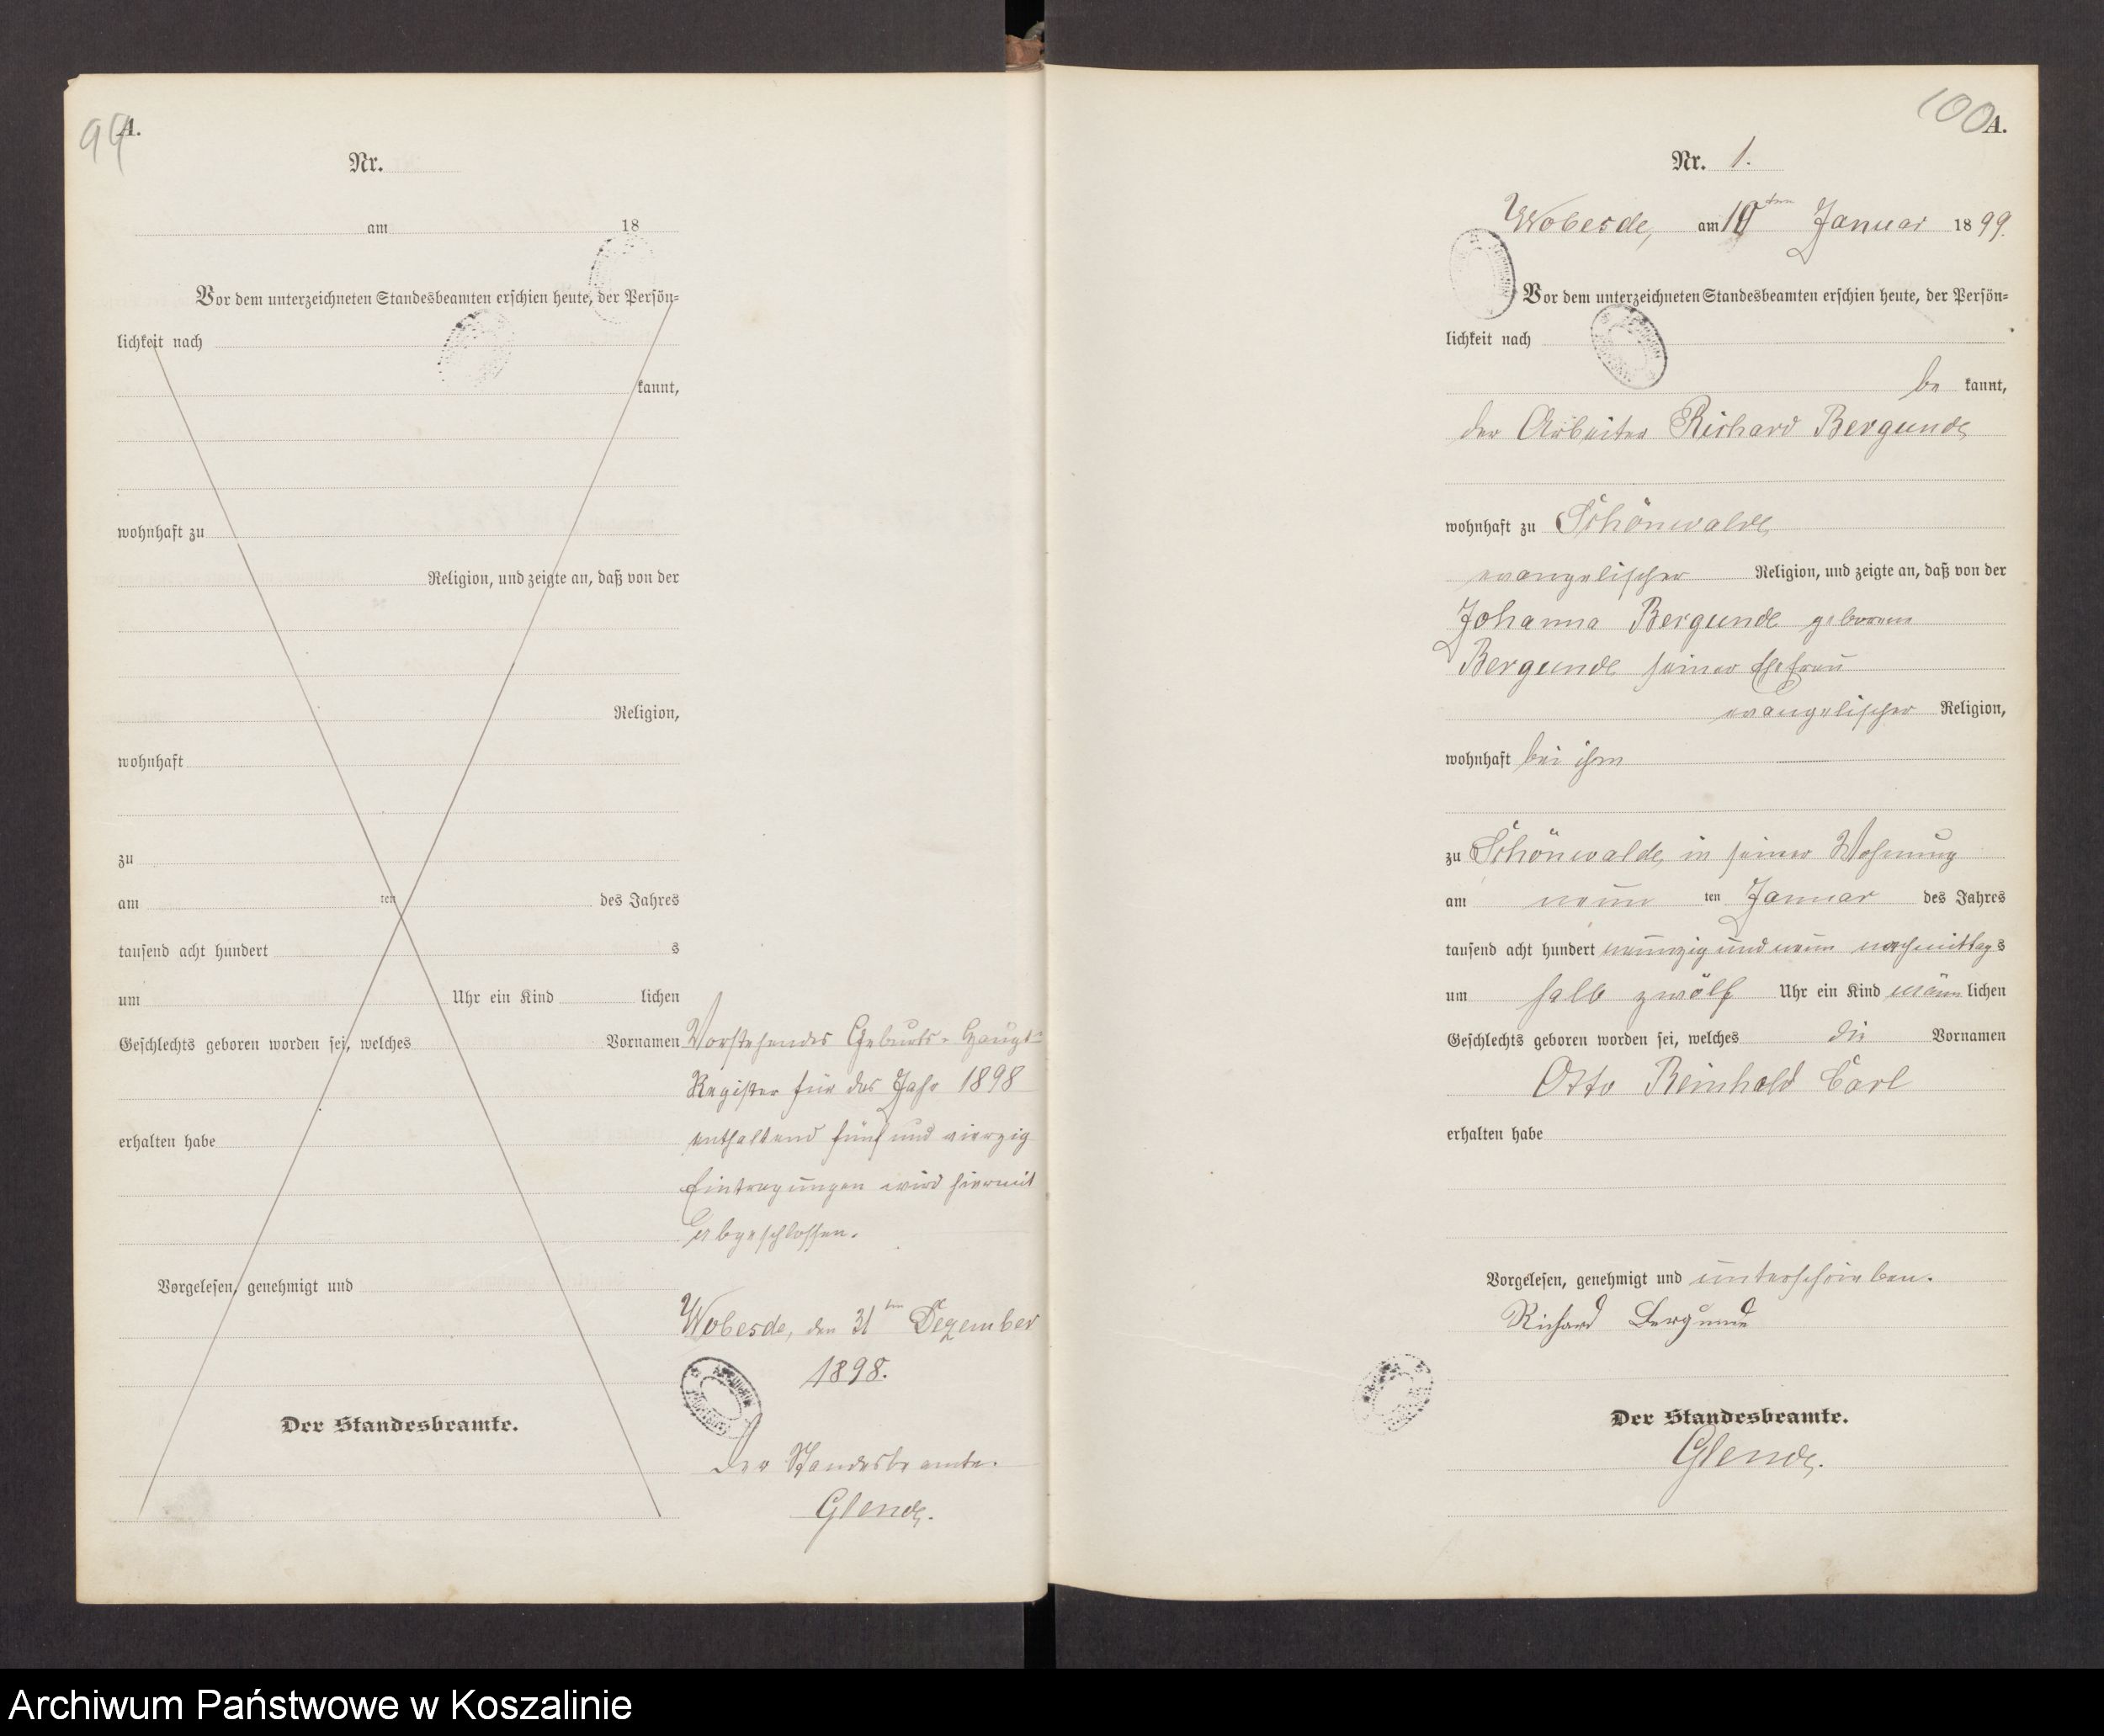 99
A.
Nr.
am 18
Vor dem unterzeichneten Standesbeamten erschien heute, der Persön=
lichkeit nach
kannt,
wohnhaft zu
Religion, und zeigte an, daß von der
Religion,
wohnhaft
zu
am ten des Jahres
tausend acht hundert s
um Uhr ein Kind lichen
Geschlechts geboren worden sei, welches Vornamen
erhalten habe
Vorgelesen, genehmigt und
Der Standesbeamte.
Vorstehendes Geburts-Haupt=
Register für das Jahr 1898
enthaltend fünf und vierzig
Eintragungen wird hiermit
abgeschlossen.
Wobesde, den 31ten Dezember
1898.
Der Standesbeamte.
Glende.
100
A.
Nr. 1.
Wobesde, am 10ten Januar 1899.
Vor dem unterzeichneten Standesbeamten erschien heute, der Persön=
lichkeit nach
be kannt,
der Arbeiter Richard Bergunde
wohnhaft zu Schönwalde
evangelischer Religion, und zeigte an, daß von der
Johanna Bergunde geborenen
Bergunde seiner Ehefrau
evangelischer Religion,
wohnhaft bei ihm
zu Schönwalde in seiner Wohnung
am neun ten Januar des Jahres
tausend acht hundert neunzig und neun nachmittags
um halb zwölf Uhr ein Kind männlichen
Geschlechts geboren worden sei, welches die Vornamen
Otto Reinhold Carl
erhalten habe
Vorgelesen, genehmigt und unterschrieben.
Richard Bergunde
Der Standesbeamte.
Glende.
Archiwum Państwowe w Koszalinie